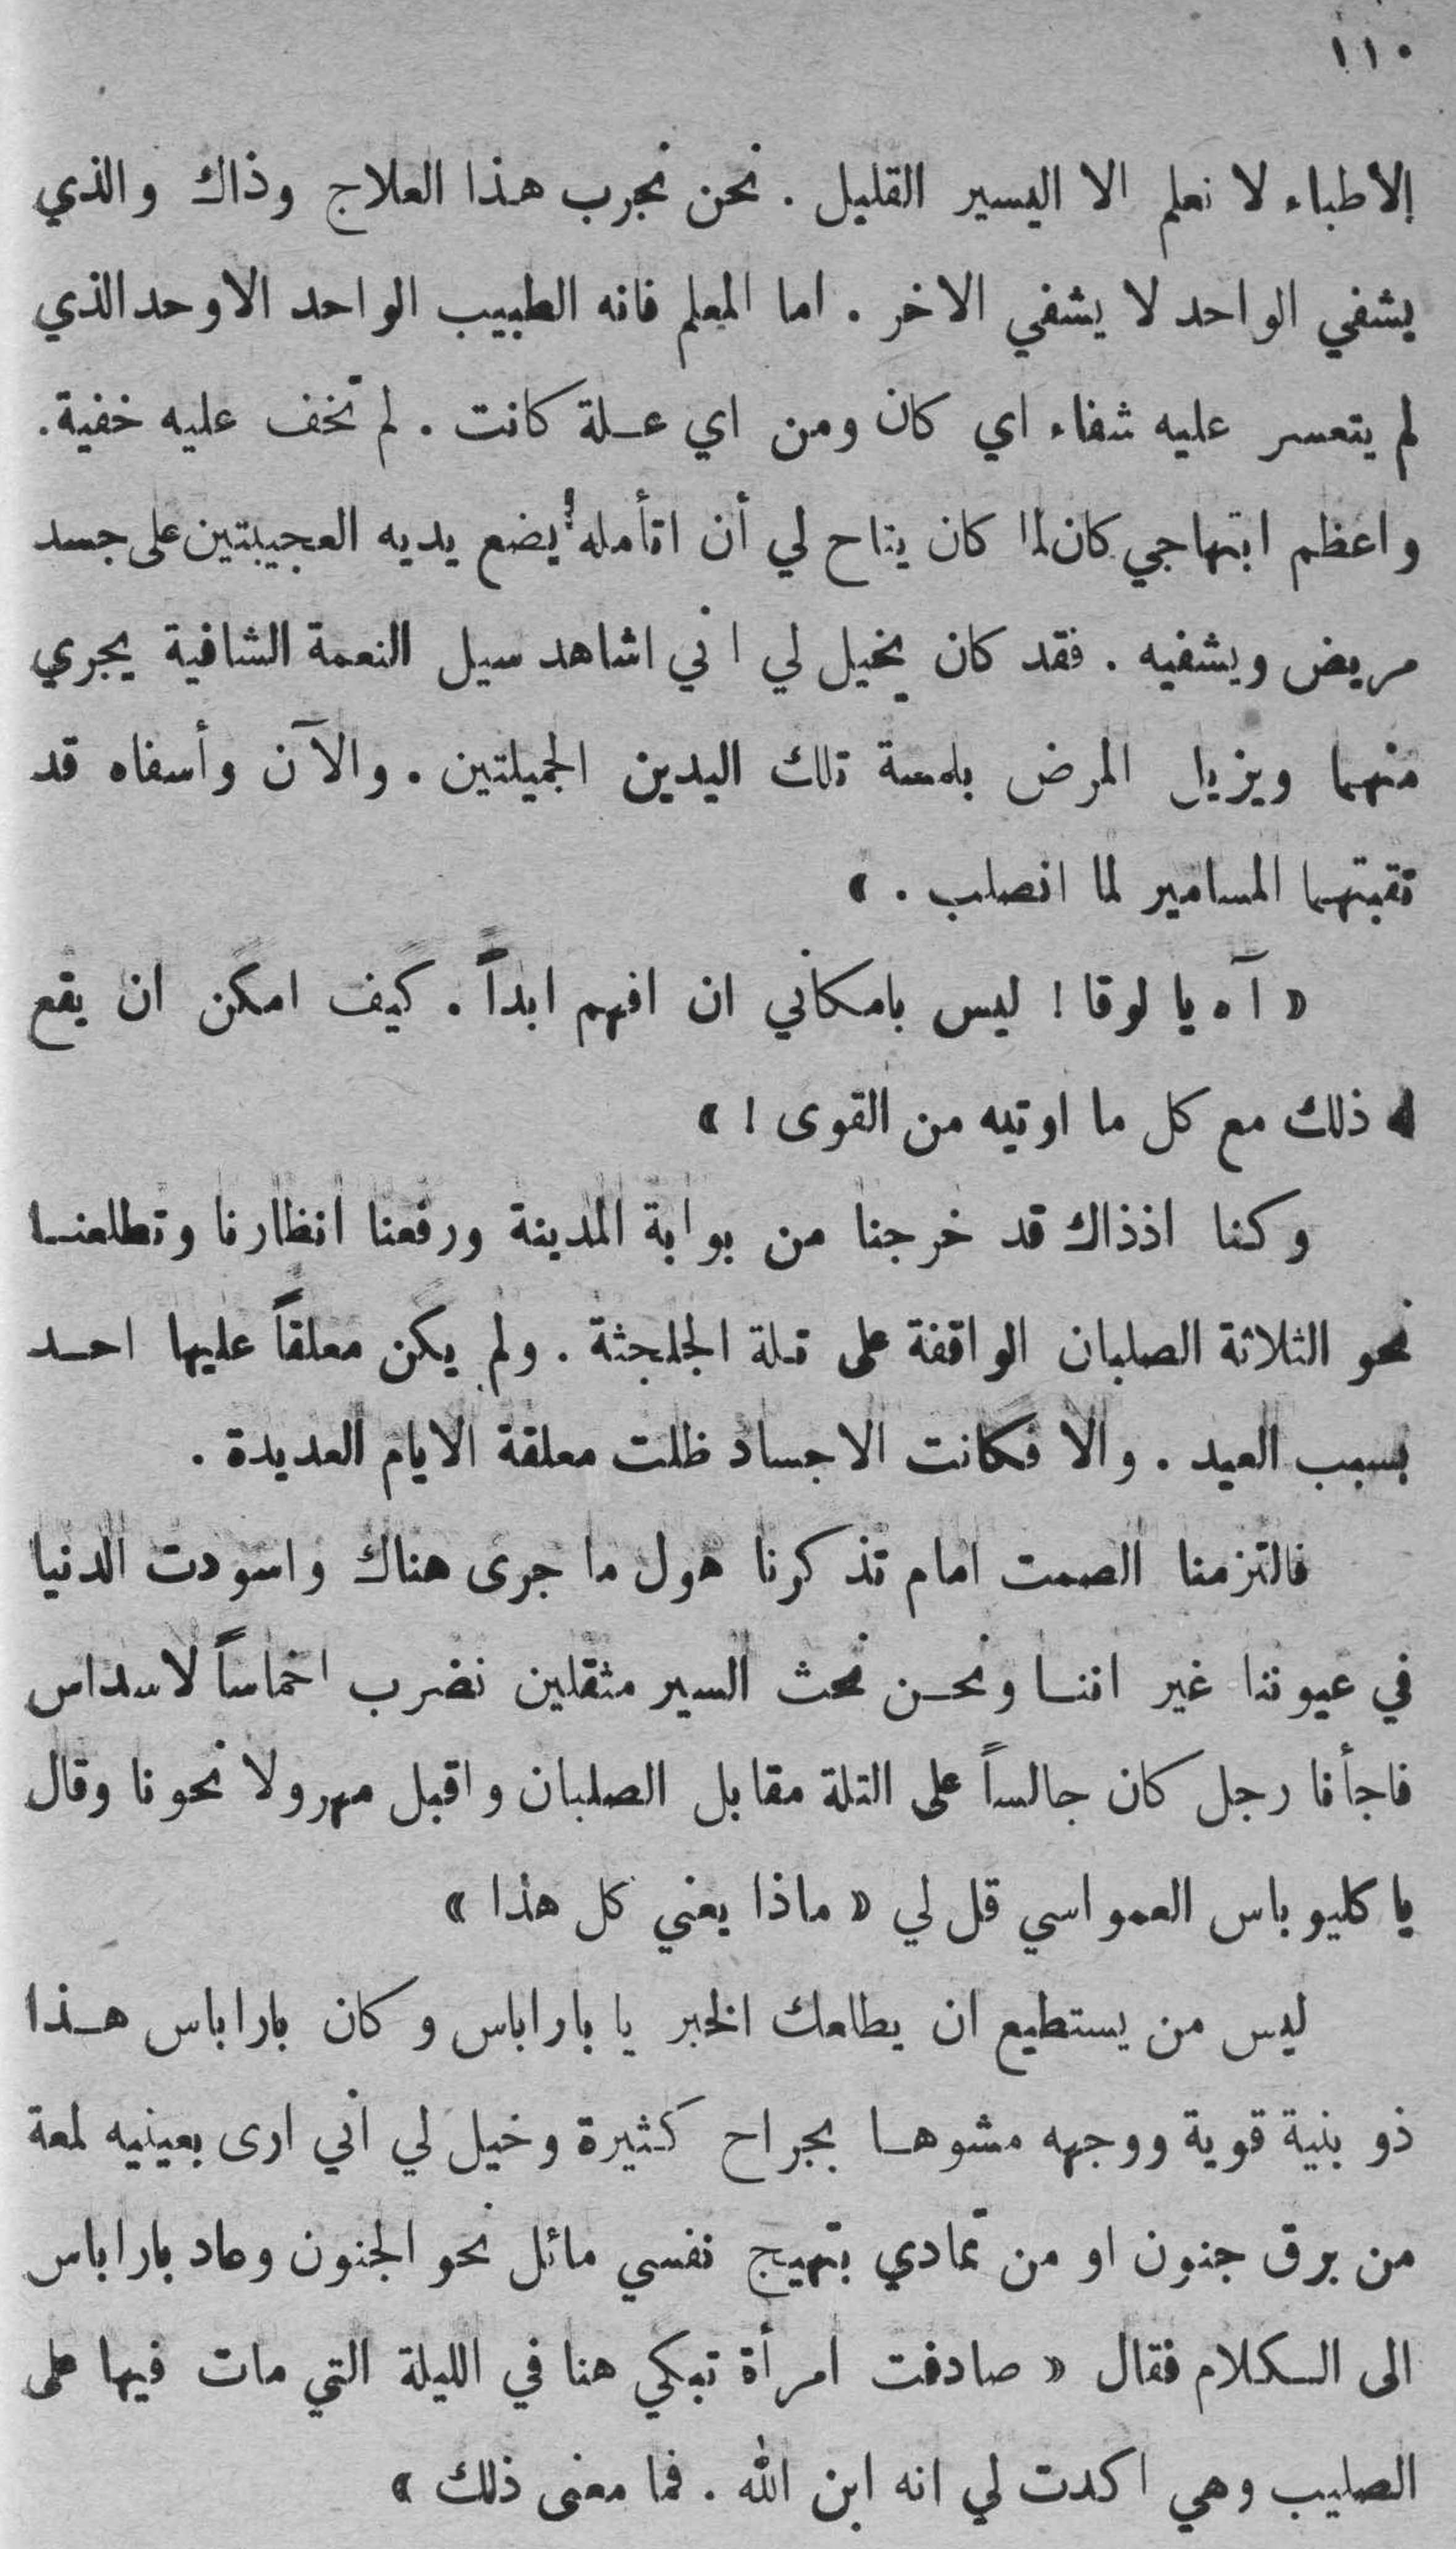 ١١٠
الاطباء لا نعلم الا اليسير القليل . نحن نجرب هذا العلاج وذاك والذي
يشفي الواحد لا يشفي الاخر . اما المعلم فانه الطبيب الواحد الاوحد الذي
لم يتعسر عليه شفاء اي كان ومن اي عـلة كانت . لم تخف عليه خفية.
واعظم ابتهاجي كان لما كان يتاح لي أن اتأمله يضع يديه العجيبتين على جسد
مريض ويشفيه . فقد كان يخيل لي اني اشاهد سيل النعمة الشافية يجري
منهما ويزيل المرض بلمسة تلك اليدين الجميلتين . والآن وأسفاه قد
ثقبتهما المسامير لما انصلب . »
« آه يا لوقا ! ليس بامكاني ان افهم ابداً . كيف امكن ان يقع
له ذلك مع كل ما اوتيه من القوى ! »
وكنا اذذاك قد خرجنا من بوابة المدينة ورفعنا انظارنا وتطلعنـا
نحو الثلاثة الصلبان الواقفة على تلة الجلجثة . ولم يكن معلقاً عليها احـد
بسبب العيد . والا فكانت الاجساد ظلت معلقة الايام العديدة .
فالتزمنا الصمت امام تذكرنا هول ما جرى هناك واسودت الدنيا
في عيوننا غير اننـا ونحـن نحث السير مثقلين نضرب اخماساً لاسداس
فاجأنا رجل كان جالساً على التلة مقابل الصلبان واقبل مهرولا نحونا وقال
يا كليوباس العمواسي قل لي « ماذا يعني كل هذا »
ليس من يستطيع ان يطلعك الخبر يا باراباس وكان باراباس هـذا
ذو بنية قوية ووجهه مشوهـا بجراح كثيرة وخيل لي اني ارى بعينيه لمعة
من برق جنون او من تمادي بتهيج نفسي مائل نحو الجنون وعاد باراباس
الى الـكلام فقال « صادفت امرأة تبكي هنا في الليلة التي مات فيها على
الصليب وهي اكدت لي انه ابن الله . فما معنى ذلك »